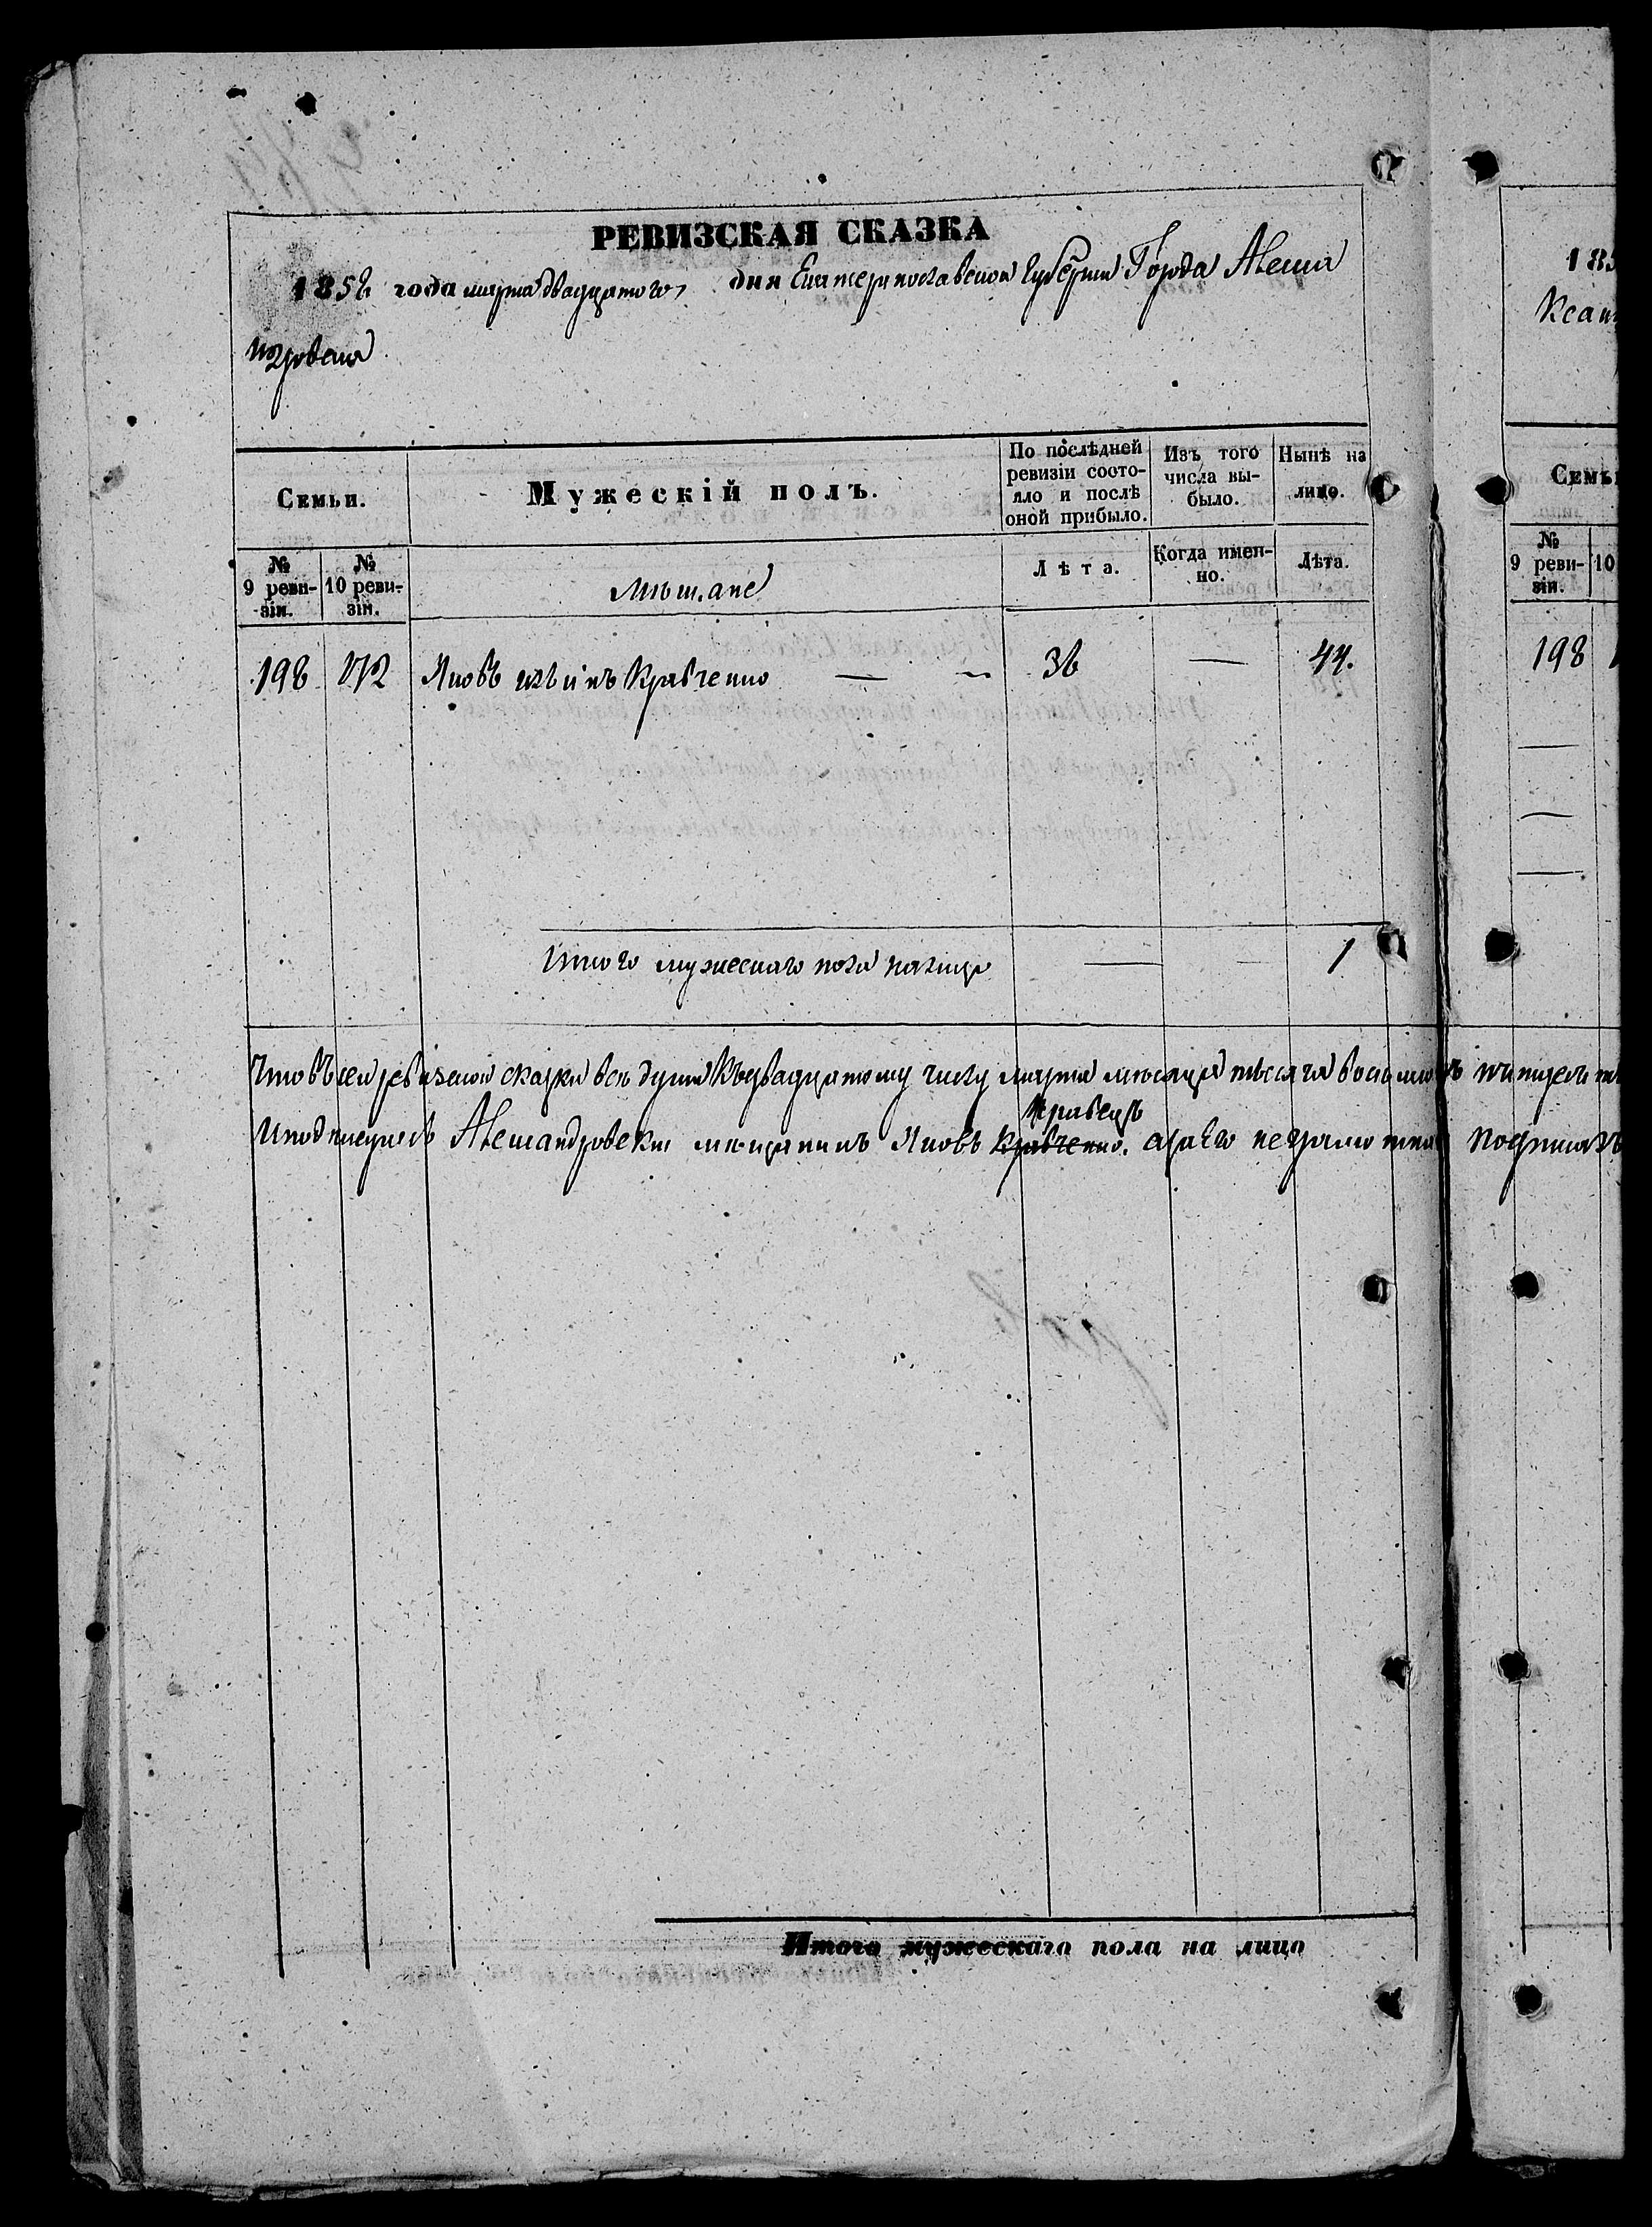 РЕВИЗСКАЯ СКАЗКА
1858 года марта двадцатого дня Екатеринославской Губернiи Города Алекса
ндровска
Семьи.
Мужескiй полъ.
По послѣдней ревизiи состо-
яло и послѣ
оной прибыло.
Изъ того
числа вы-
было.
Нынѣ на
лицо.
№
9 реви-
зiи.
№
10 реви-
зiи.
мѣщане
Лѣта.
Когда имен-
но.
Лѣта.
198 172 Яковъ Кравченко — 36 — 44.
Итого мужескаго пола налицо — — 1
Что въ сей ревизской сказки всѣ души къ двадцатому числу марта мѣсяца тысяча
Кравецъ
Александровскiй мѣщанинъ Яковъ Кравченко. а за его
Итого мужескаго пола на лицо
185
Ксан
Семьи
№
9 реви-
зiи.
10
198
подписалъ